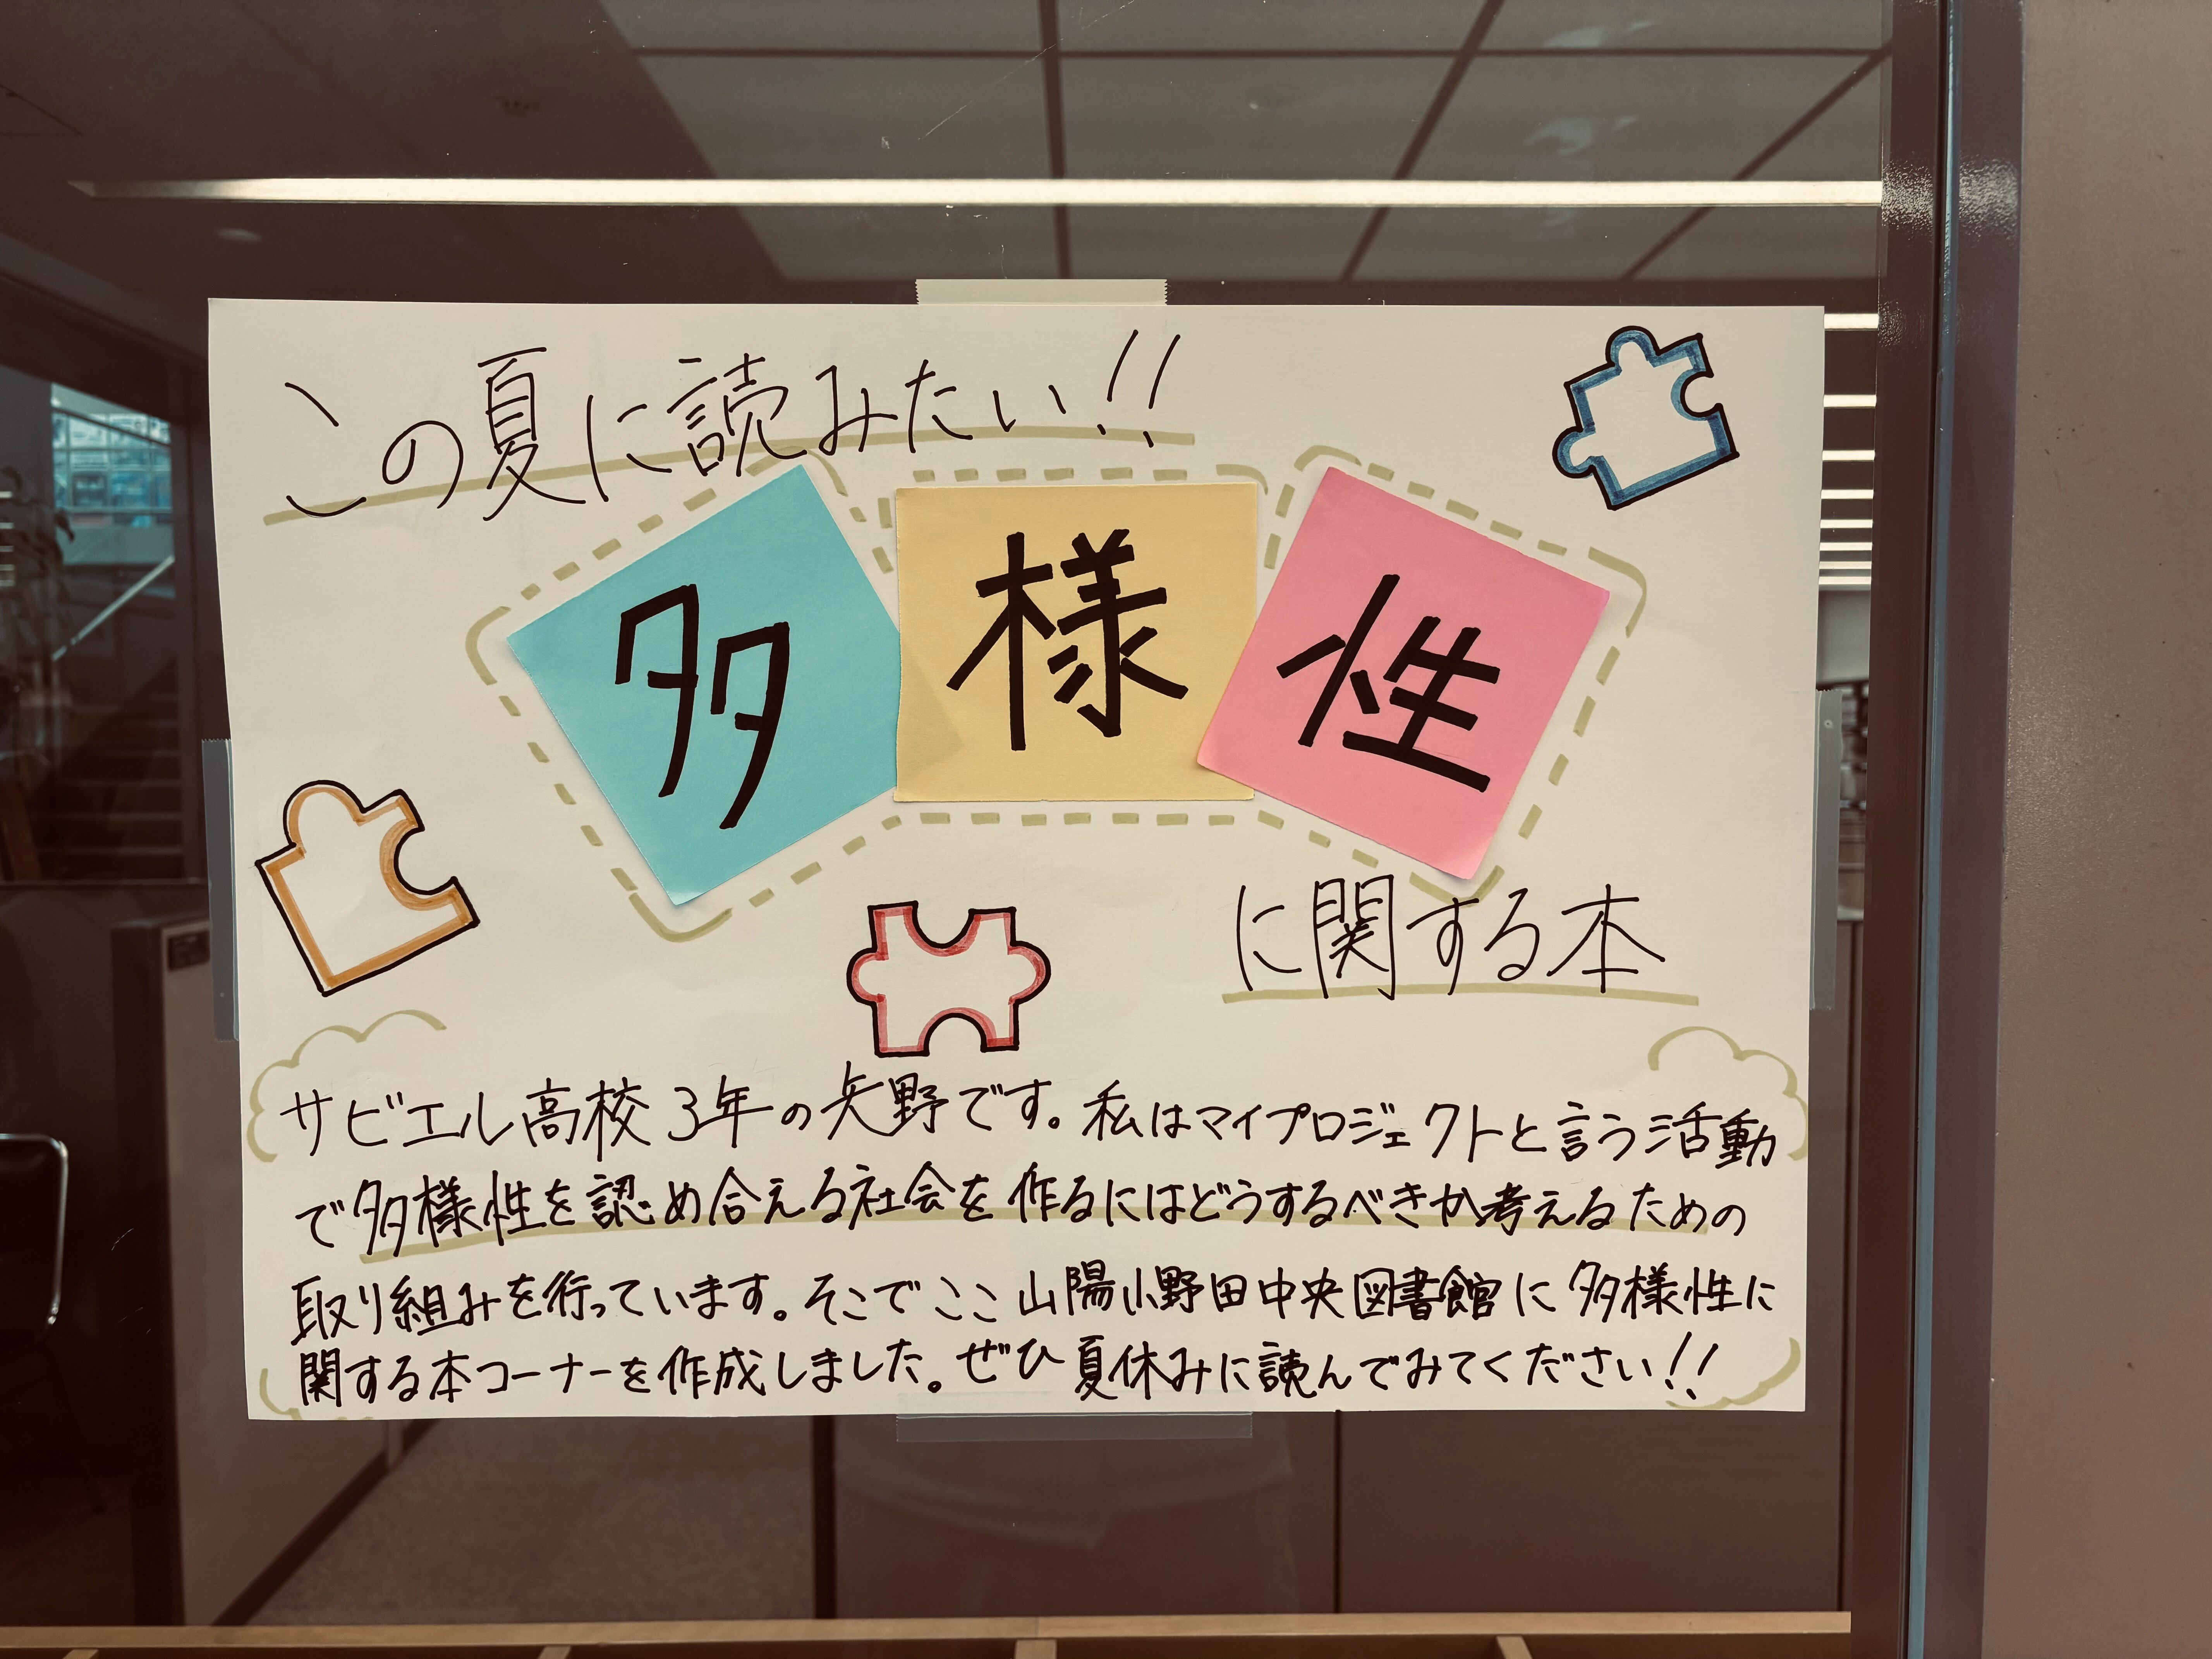 この夏に読みたい!!
多様性
に関する本
サビエル高校3年の矢野です。私はマイプロジェクトと言う活動
で多様性を認め合える社会を作るにはどうするべきか考えるための
取り組みを行っています。そこでここ山陽小野田中央図書館に多様性に
関する本コーナーを作成しました。ぜひ夏休みに読んでみてください!!